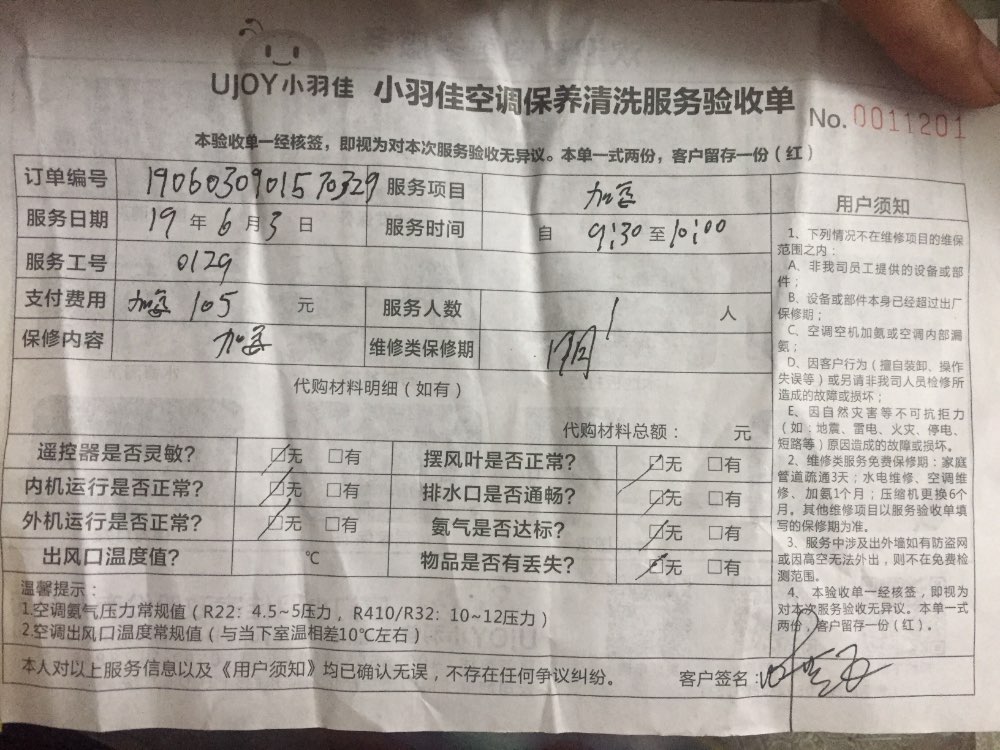 UJOY小羽佳 小羽佳空调保养清洗服务验收单 No. 0011201
本验收单一经核签，即视为对本次服务验收无异议。本单一式两份，客户留存一份（红）
订单编号 1906030901570329 服务项目 加氨
服务日期 19 年 6 月 3 日 服务时间 自 9:30 至 10:00
服务工号 0129
支付费用 加氨 105 元 服务人数 1 人
保修内容 加氨 维修类保修期 1个月
代购材料明细（如有）
代购材料总额： 元
遥控器是否灵敏？ □无 □有 摆风叶是否正常？ □无 □有
内机运行是否正常？ □无 □有 排水口是否通畅？ □无 □有
外机运行是否正常？ □无 □有 氨气是否达标？ □无 □有
出风口温度值？ ℃ 物品是否有丢失？ □无 □有
温馨提示：
1.空调氨气压力常规值（R22：4.5~5压力，R410/R32：10~12压力）
2.空调出风口温度常规值（与当下室温相差10℃左右）
本人对以上服务信息以及《用户须知》均已确认无误，不存在任何争议纠纷。 客户签名：
用户须知
1、下列情况不在维修项目的维保
范围之内：
A、非我司员工提供的设备或部
件；
B、设备或部件本身已经超过出厂
保修期；
C、空调空机加氨或空调内部漏
氨；
D、因客户行为（擅自装卸、操作
失误等）或另请非我司人员检修所
造成的故障或损坏；
E、因自然灾害等不可抗拒力
（如：地震、雷电、火灾、停电、
短路等）原因造成的故障或损坏。
2、维修类服务免费保修期：家庭
管道疏通3天；水电维修、空调维
修、加氨1个月；压缩机更换6个
月。其他维修项目以服务验收单填
写的保修期为准。
3、服务中涉及出外墙如有防盗网
或因高空无法外出，则不在免费检
测范围。
4、本验收单一经核签，即视为
对本次服务验收无异议。本单一式
两份，客户留存一份（红）。